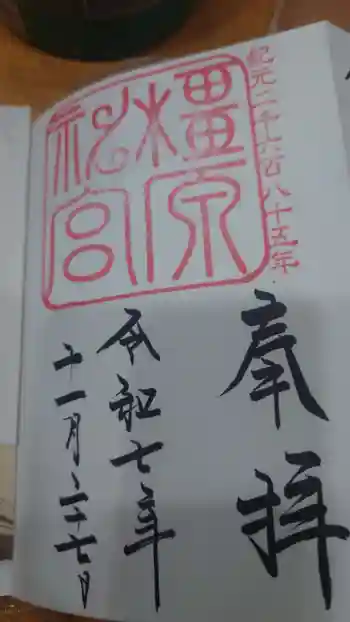 紀元二千六百八十五年
奉拝
橿原
神宮
令和七年
十一月二十七日